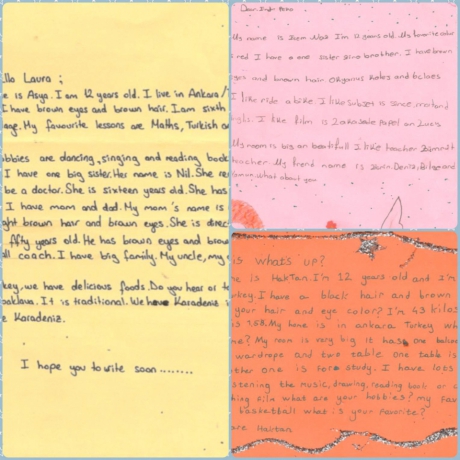 llo Laura ;
e is Asya. I am 12 years old. I live in Ankara/T
I have brown eyes and brown hair. I am sixth
age. My favourite lessons are Maths, Turkish a
obbies are dancing, singing and reading book
I have one big sister. Her name is Nil. She re
be a doctor. She is sixteen years old. She has
I have mom and dad. My mom's name is
ght brown hair and brown eyes. She is direc
fifty years old. He has brown eyes and brow
ll coach. I have big family. My uncle, my
key, we have delicious foods. Do you hear or t
baklava. It is traditional. We have Karadeniz
e Karadeniz.
I hope you to write soon ........
Dear
name is I'm years old. My favorite color
red I have a one sister one brother. I have brown
eyes and brown hair
I like ride a bike. I like
I like film is La casa de papel
My room is big an I like teacher
teacher. My friend name is Deniz,
what about you
is what's up?
me is HakTan. I'm 12 years old and I'm
rkey. I have a black hair and brown
your hair and eye color? I'm 43 kilos
is 1.58. My home is in ankara Turkey wh
me? My room is very big it has one
wardrope and two table one table is
ther one is for study. I have lobs
stening the music, drawing, reading book or
hing film what are your hobbies? my fav
basketball what is your favorite?
are Haktan